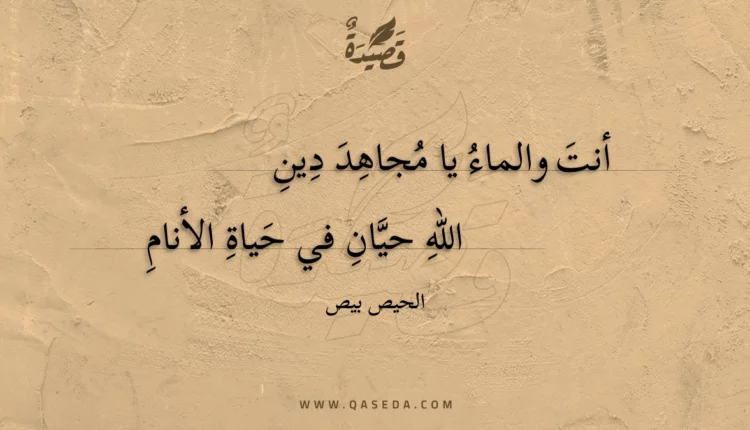 قَصِيْدَةٌ
أنتَ والماءُ يا مُجاهِدَ دِينِ
اللهِ حيَّانِ في حَياةِ الأنامِ
الحيص بيص
WWW.QASEDA.COM